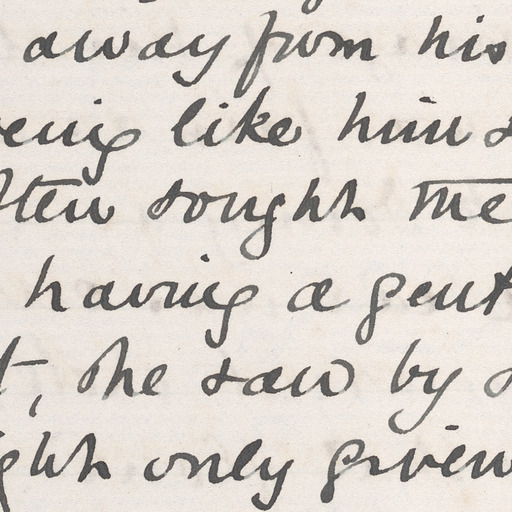 away from his
being like him s
ften sought the
having a gent
t, she saw by s
ght only given